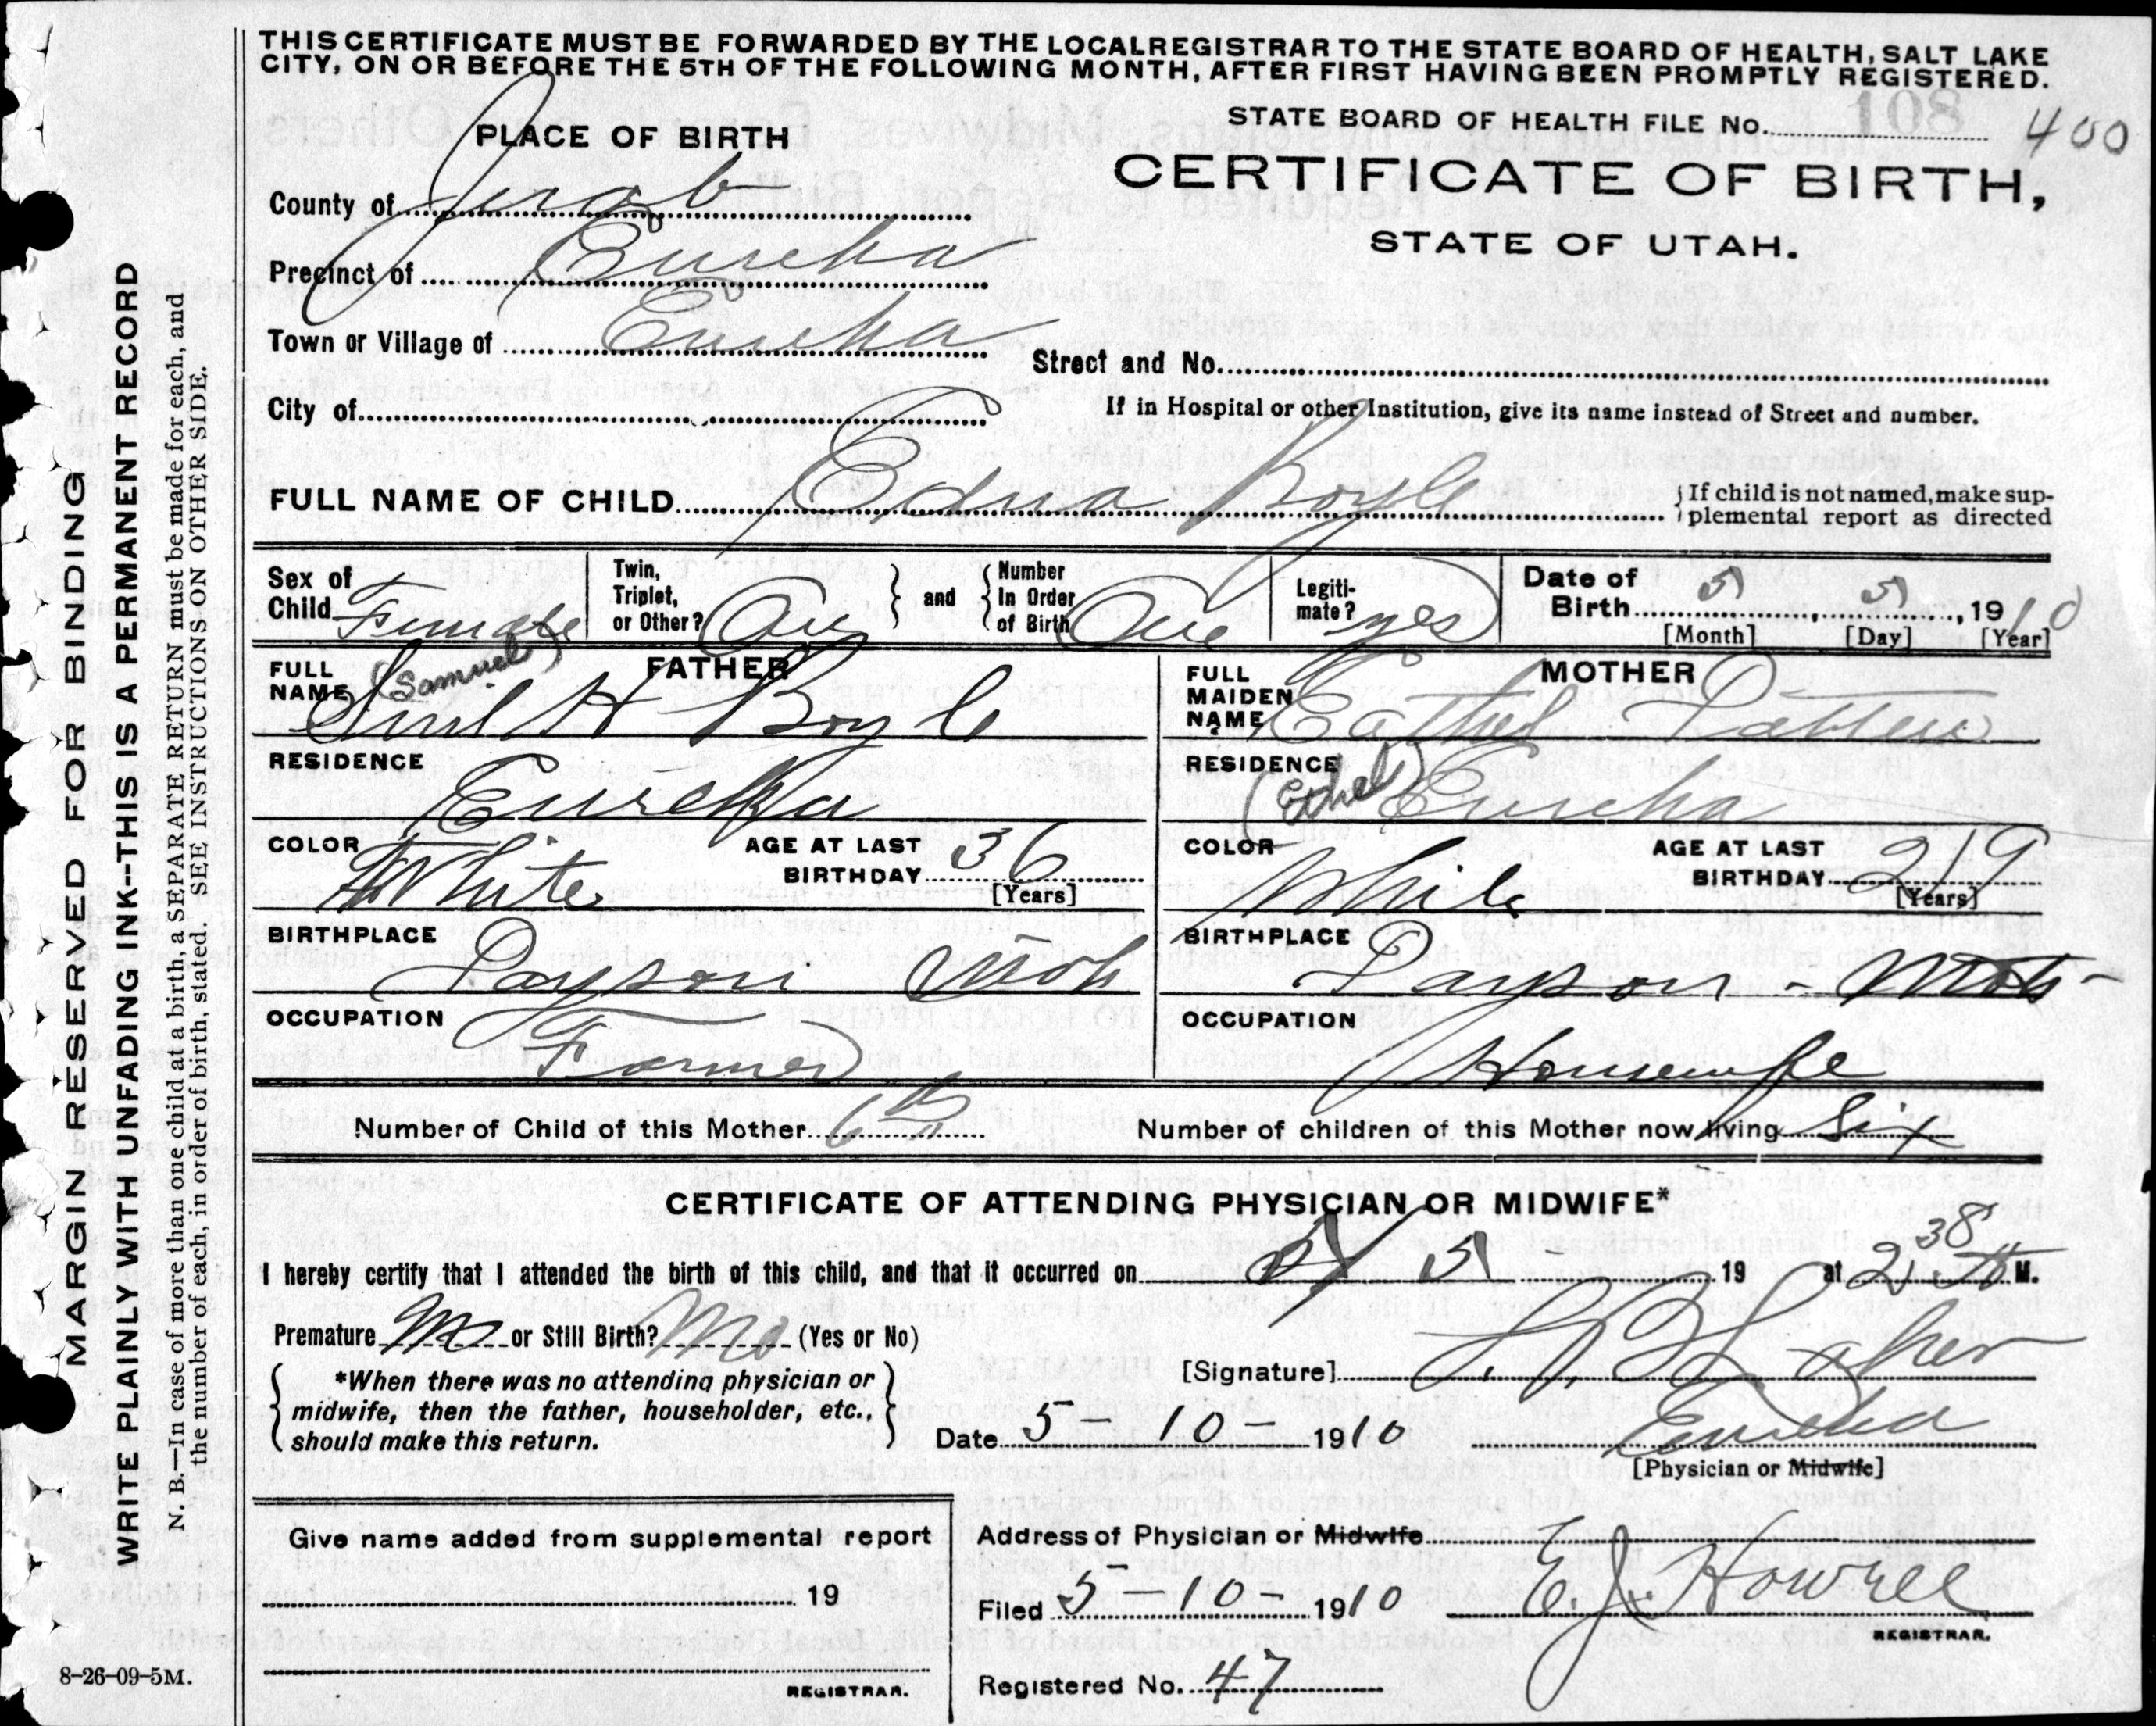 THIS CERTIFICATE MUST BE FORWARDED BY THE LOCAL REGISTRAR TO THE STATE BOARD OF HEALTH, SALT LAKE
CITY, ON OR BEFORE THE 5TH OF THE FOLLOWING MONTH, AFTER FIRST HAVING BEEN PROMPTLY REGISTERED.
STATE BOARD OF HEALTH FILE No. 108 400
PLACE OF BIRTH
CERTIFICATE OF BIRTH,
STATE OF UTAH.
County of Juab
Precinct of Eureka
Town or Village of Eureka
Street and No.
City of
If in Hospital or other Institution, give its name instead of Street and number.
FULL NAME OF CHILD Edna Boyle
If child is not named, make sup-
plemental report as directed
Sex of Child Female
Twin, Triplet, or Other? One
and
Number In Order of Birth One
Legiti-
mate? yes
Date of Birth 5, 5, 1910
[Month] [Day] [Year]
FATHER
FULL NAME (Samuel) H Boyle
MOTHER
FULL MAIDEN NAME Eathel Patten
RESIDENCE Eureka
RESIDENCE (Ethel) Eureka
COLOR White
AGE AT LAST BIRTHDAY 36
[Years]
COLOR White
AGE AT LAST BIRTHDAY 29
[Years]
BIRTHPLACE Payson Utah
BIRTHPLACE Payson - Utah -
OCCUPATION Farmer
OCCUPATION Housewife
Number of Child of this Mother 6th
Number of children of this Mother now living Six
CERTIFICATE OF ATTENDING PHYSICIAN OR MIDWIFE*
I hereby certify that I attended the birth of this child, and that it occurred on 5 19 at 2 38 M.
Premature No or Still Birth? No (Yes or No)
*When there was no attending physician or
midwife, then the father, householder, etc.,
should make this return.
[Signature]
Date 5-10-1910 Eureka
[Physician or Midwife]
Give name added from supplemental report
19
REGISTRAR.
Address of Physician or Midwife
Filed 5-10-1910 E. J. Howell
REGISTRAR.
Registered No. 47
MARGIN RESERVED FOR BINDING
WRITE PLAINLY WITH UNFADING INK--THIS IS A PERMANENT RECORD
N. B.—In case of more than one child at a birth, a SEPARATE RETURN must be made for each, and
the number of each, in order of birth, stated. SEE INSTRUCTIONS ON OTHER SIDE.
8-26-09-5M.